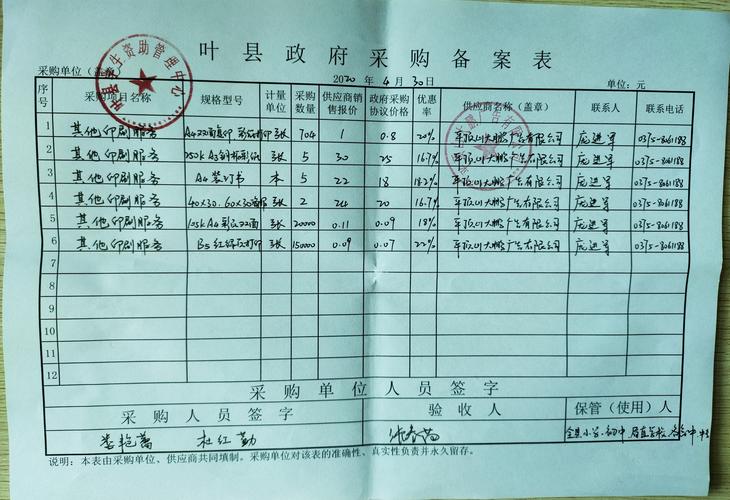 叶县政府采购备案表
采购单位(盖章)
2020 年 4 月 30日
单位:元
叶县学生资助管理中心
序号 采购项目名称 规格型号 计量单位 采购数量 供应商销售报价 政府采购协议价格 优惠率 供应商名称(盖章) 联系人 联系电话
1 其他印刷服务 A4双面复印 张 704 1 0.8 20% 平顶山大鹏广告有限公司 庞进军 0375-8061188
2 其他印刷服务 张 5 30 25 16.7% 平顶山大鹏广告有限公司 庞进军 0375-8061188
3 其他印刷服务 A4装订书 本 5 22 18 18.2% 平顶山大鹏广告有限公司 庞进军 0375-8061188
4 其他印刷服务 40×30. 60×30 张 2 24 20 16.7% 平顶山大鹏广告有限公司 庞进军 0375-8061188
5 其他印刷服务 张 20000 0.11 0.09 18% 平顶山大鹏广告有限公司 庞进军 0375-8061188
6 其他印刷服务 B5 张 150000 0.09 0.07 22% 平顶山大鹏广告有限公司 庞进军 0375-8061188
7
8
9
10
11
12
采购单位人员签字
采购人员签字 验收人 保管(使用)人
娄艳蕾 杜红勤
说明:本表由采购单位、供应商共同填制。采购单位对该表的准确性、真实性负责并永久留存。